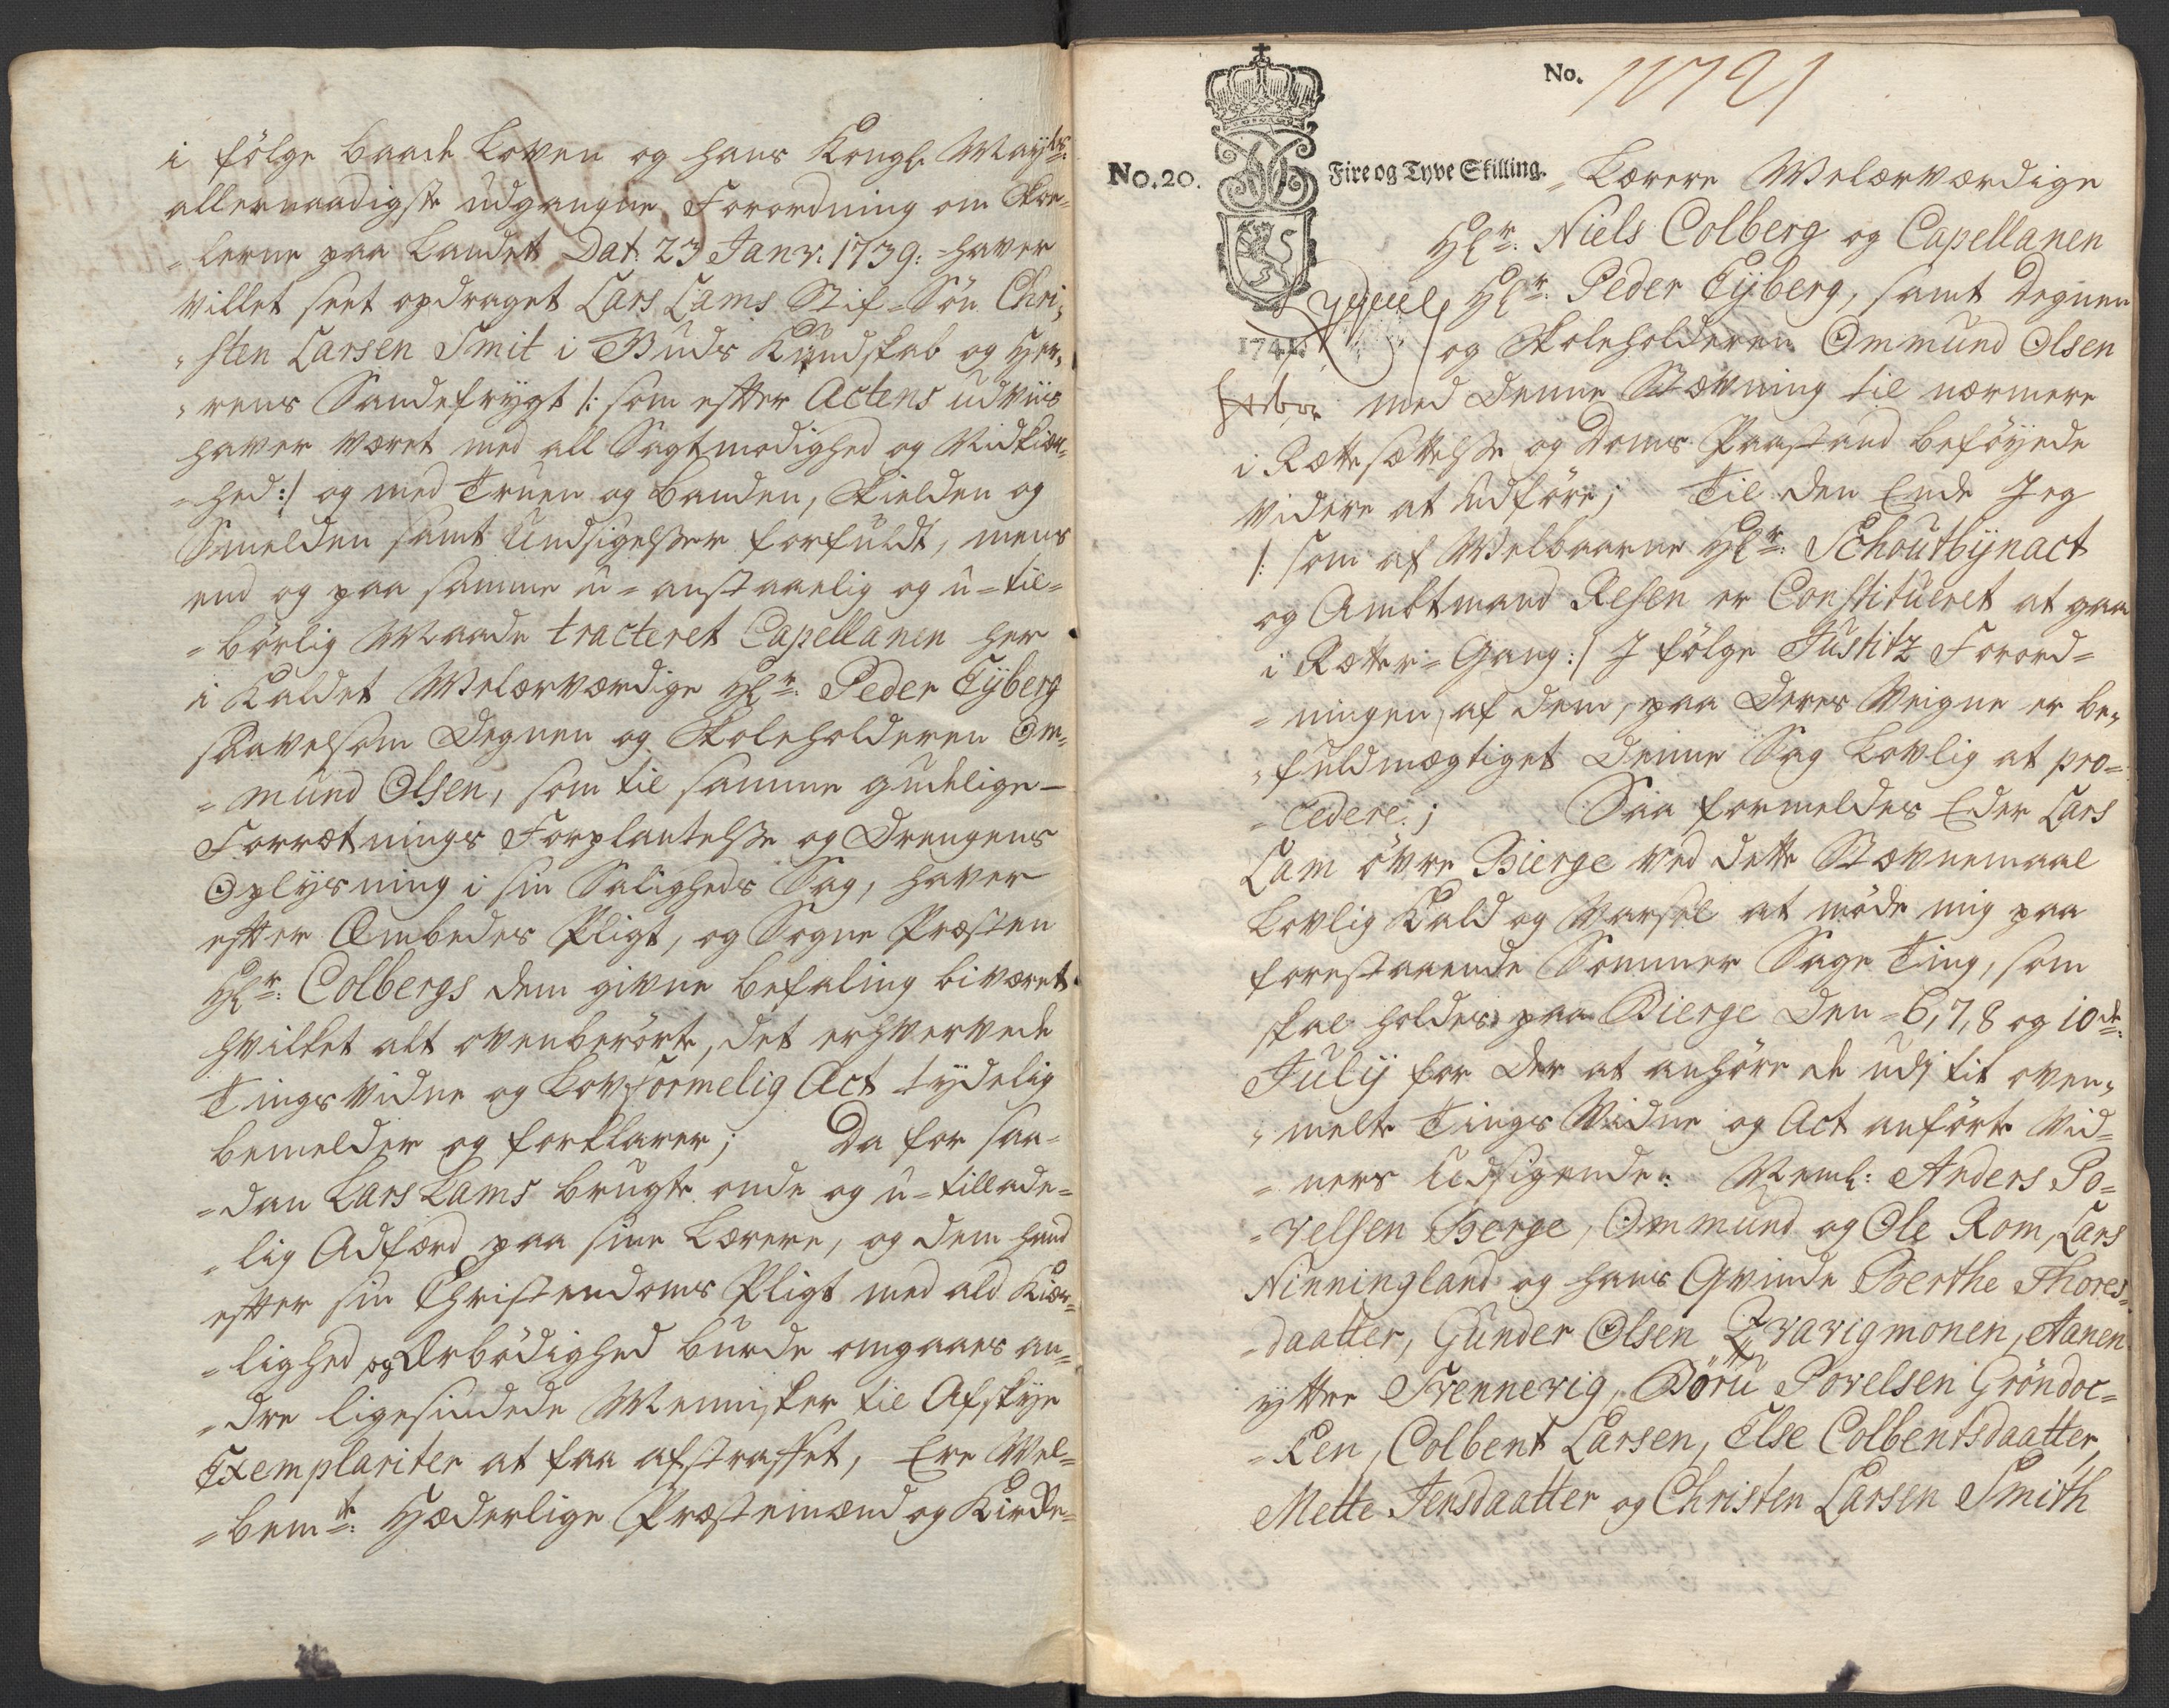 i følge baade Loven og hans Kongl. Mayts:
allernaadigste udgangne Forordning om Skoe-
=lerne paa Landet Dat: 23 Janv: 1739: haver
villet seet opdraget Lars Lams Stif-Søn Chri,
,sten Larsen Smit i Guds Kundskab og Her,
,rens Sandefrygt /: som efter Actens udviis
haver været med all Sagtmodighed og Nidkier,
=hed:/ og med Truen og Banden, Skielden og
Smelden samt Undsigelsser forfuldt, mens
end og paa samme u=anstaaelig og u=til=
=børlig Maade tracteret Capellanen her
i Kaldet Welærværdige Hr: Peder Eyberg
saavelsom Degnen og Skoleholderen Om,
=mund Olsen, som til samme gudelige
Forrætnings Forplantelsse og Drengens
Oplysning i sin Saligheds Sag, haver
efter Embedes Pligt, og Sogne Præsten
Hr: Colbergs dem givne befaling biværet
hvilket alt ovenberørte, det erhvervede
Tingsvidne og Lovformelig Act tydelig
bemelder og forklarer; Da for saa=
=dan Lars Lams brugte onde og u=tillade=
=lig Adfærd paa sine Lærere, og dem hand
efter sin Christendoms Pligt med ald Kier,
=lighed og Ærbødighed burde omgaaes an=
=dre ligesindede Mennisker til Afskye
Exemplariter at faa afstraffet, Ere Wel=
=bemte: Hæderlige Præstemænd og Kirke=
No. 11721
No. 20. Fire og Tyve Skilling.
=Lærere Welærværdige
Hr: Niels Colberg og Capellanen
Hr: Peder Eyberg, samt Degnen
1741.
og Skoleholderen Ommund Olsen
med denne Stævning til nærmere
i Rættesættelsse og Doms Paastand beføyede
videre at udføre; Til den Ende Jeg
/: som af Welbaarne Hr: Schoutbynact
og Ambtmand Resen er Constitueret at gaa
i Rætter=Gang:/ J følge Justitz Forord=
=ningen, af dem, paa deres Veigne er be,
,fuldmægtiget denne Sag Lovlig at pro=
=cedere; Saa formeldes Eder Lars
Lam øvre Bierge ved dette Stævnemaal
Lovlig Kald og Varsel at møde mig paa
forestaaende Sommer Sage Ting, som
skal holdes paa Bierge den 6, 7, 8 og 10de:
July for der at anhøre de udj tit oven,
,melte Tings Vidne og Act anførte Vid=
=ners Udsigende: Neml: Anders Po=
=velsen Berge, Ommund og Ole Rom, Lars
Ninningland og hans Qvinde Berthe Thores=
=daatter, Gunder Olsen Qvavigmonen, Aanen
yttre Svennevig, Børu Povelsen Grøndoc=
=ken, Colbent Larsen, Else Colbentsdaatter,
Mette Jensdaatter og Christen Larsen Smith